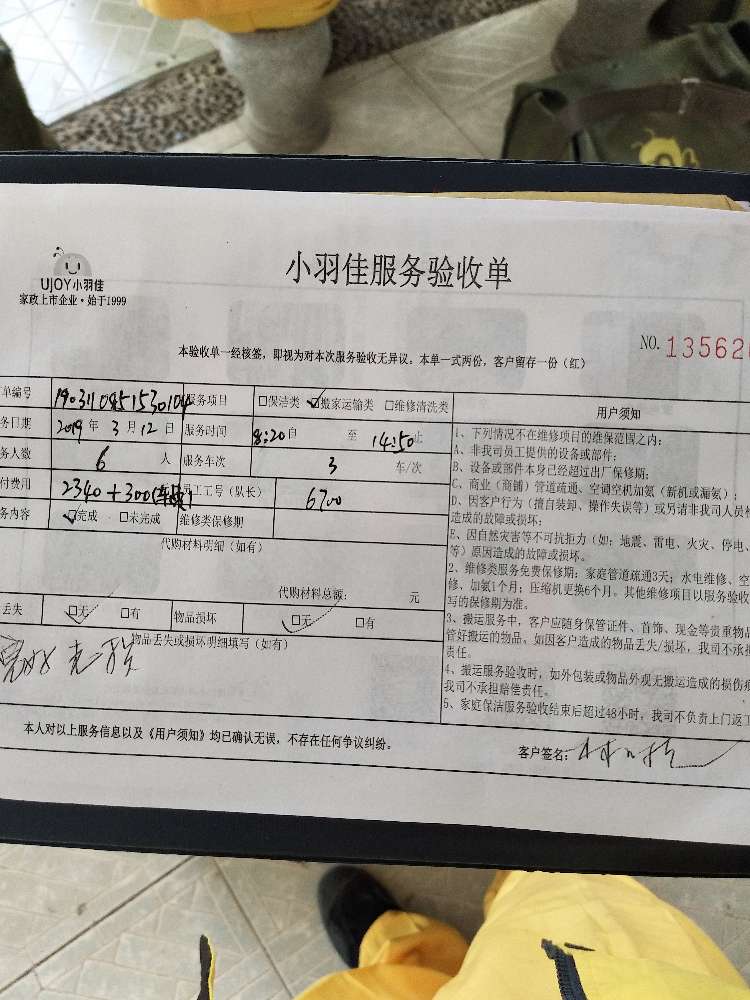 UJOY小羽佳
家政上市企业·始于1999
小羽佳服务验收单
本验收单一经核签，即视为对本次服务验收无异议。本单一式两份，客户留存一份（红）
NO. 13562
单编号 190311085153010 服务项目 □保洁类 ☑搬家运输类 □维修清洗类
务日期 2019 年 3 月 12 日 服务时间 8:20 自 至 14:50 止
务人数 6 人 服务车次 3 车/次
付费用 2340+300 员工工号（队长） 6700
务内容 ☑完成 □未完成 维修类保修期
代购材料明细（如有）
代购材料总额： 元
丢失 ☑无 □有 物品损坏 ☑无 □有
物品丢失或损坏明细填写（如有）
用户须知
1、下列情况不在维修项目的维保范围之内：
A、非我司员工提供的设备或部件；
B、设备或部件本身已经超过出厂保修期；
C、商业（商铺）管道疏通、空调空机加氨（新机或漏氨）；
D、因客户行为（擅自装卸、操作失误等）或另请非我司人员
造成的故障或损坏；
E、因自然灾害等不可抗拒力（如：地震、雷电、火灾、停电、
等）原因造成的故障或损坏。
2、维修类服务免费保修期：家庭管道疏通3天；水电维修、空
修、加氨1个月；压缩机更换6个月。其他维修项目以服务验收
写的保修期为准。
3、搬运服务中，客户应随身保管证件、首饰、现金等贵重物品
管好搬运的物品。如因客户造成的物品丢失/损坏，我司不承担
责任。
4、搬运服务验收时，如外包装或物品外观无搬运造成的损伤
我司不承担赔偿责任。
5、家庭保洁服务验收结束后超过48小时，我司不负责上门返工
本人对以上服务信息以及《用户须知》均已确认无误，不存在任何争议纠纷。
客户签名：